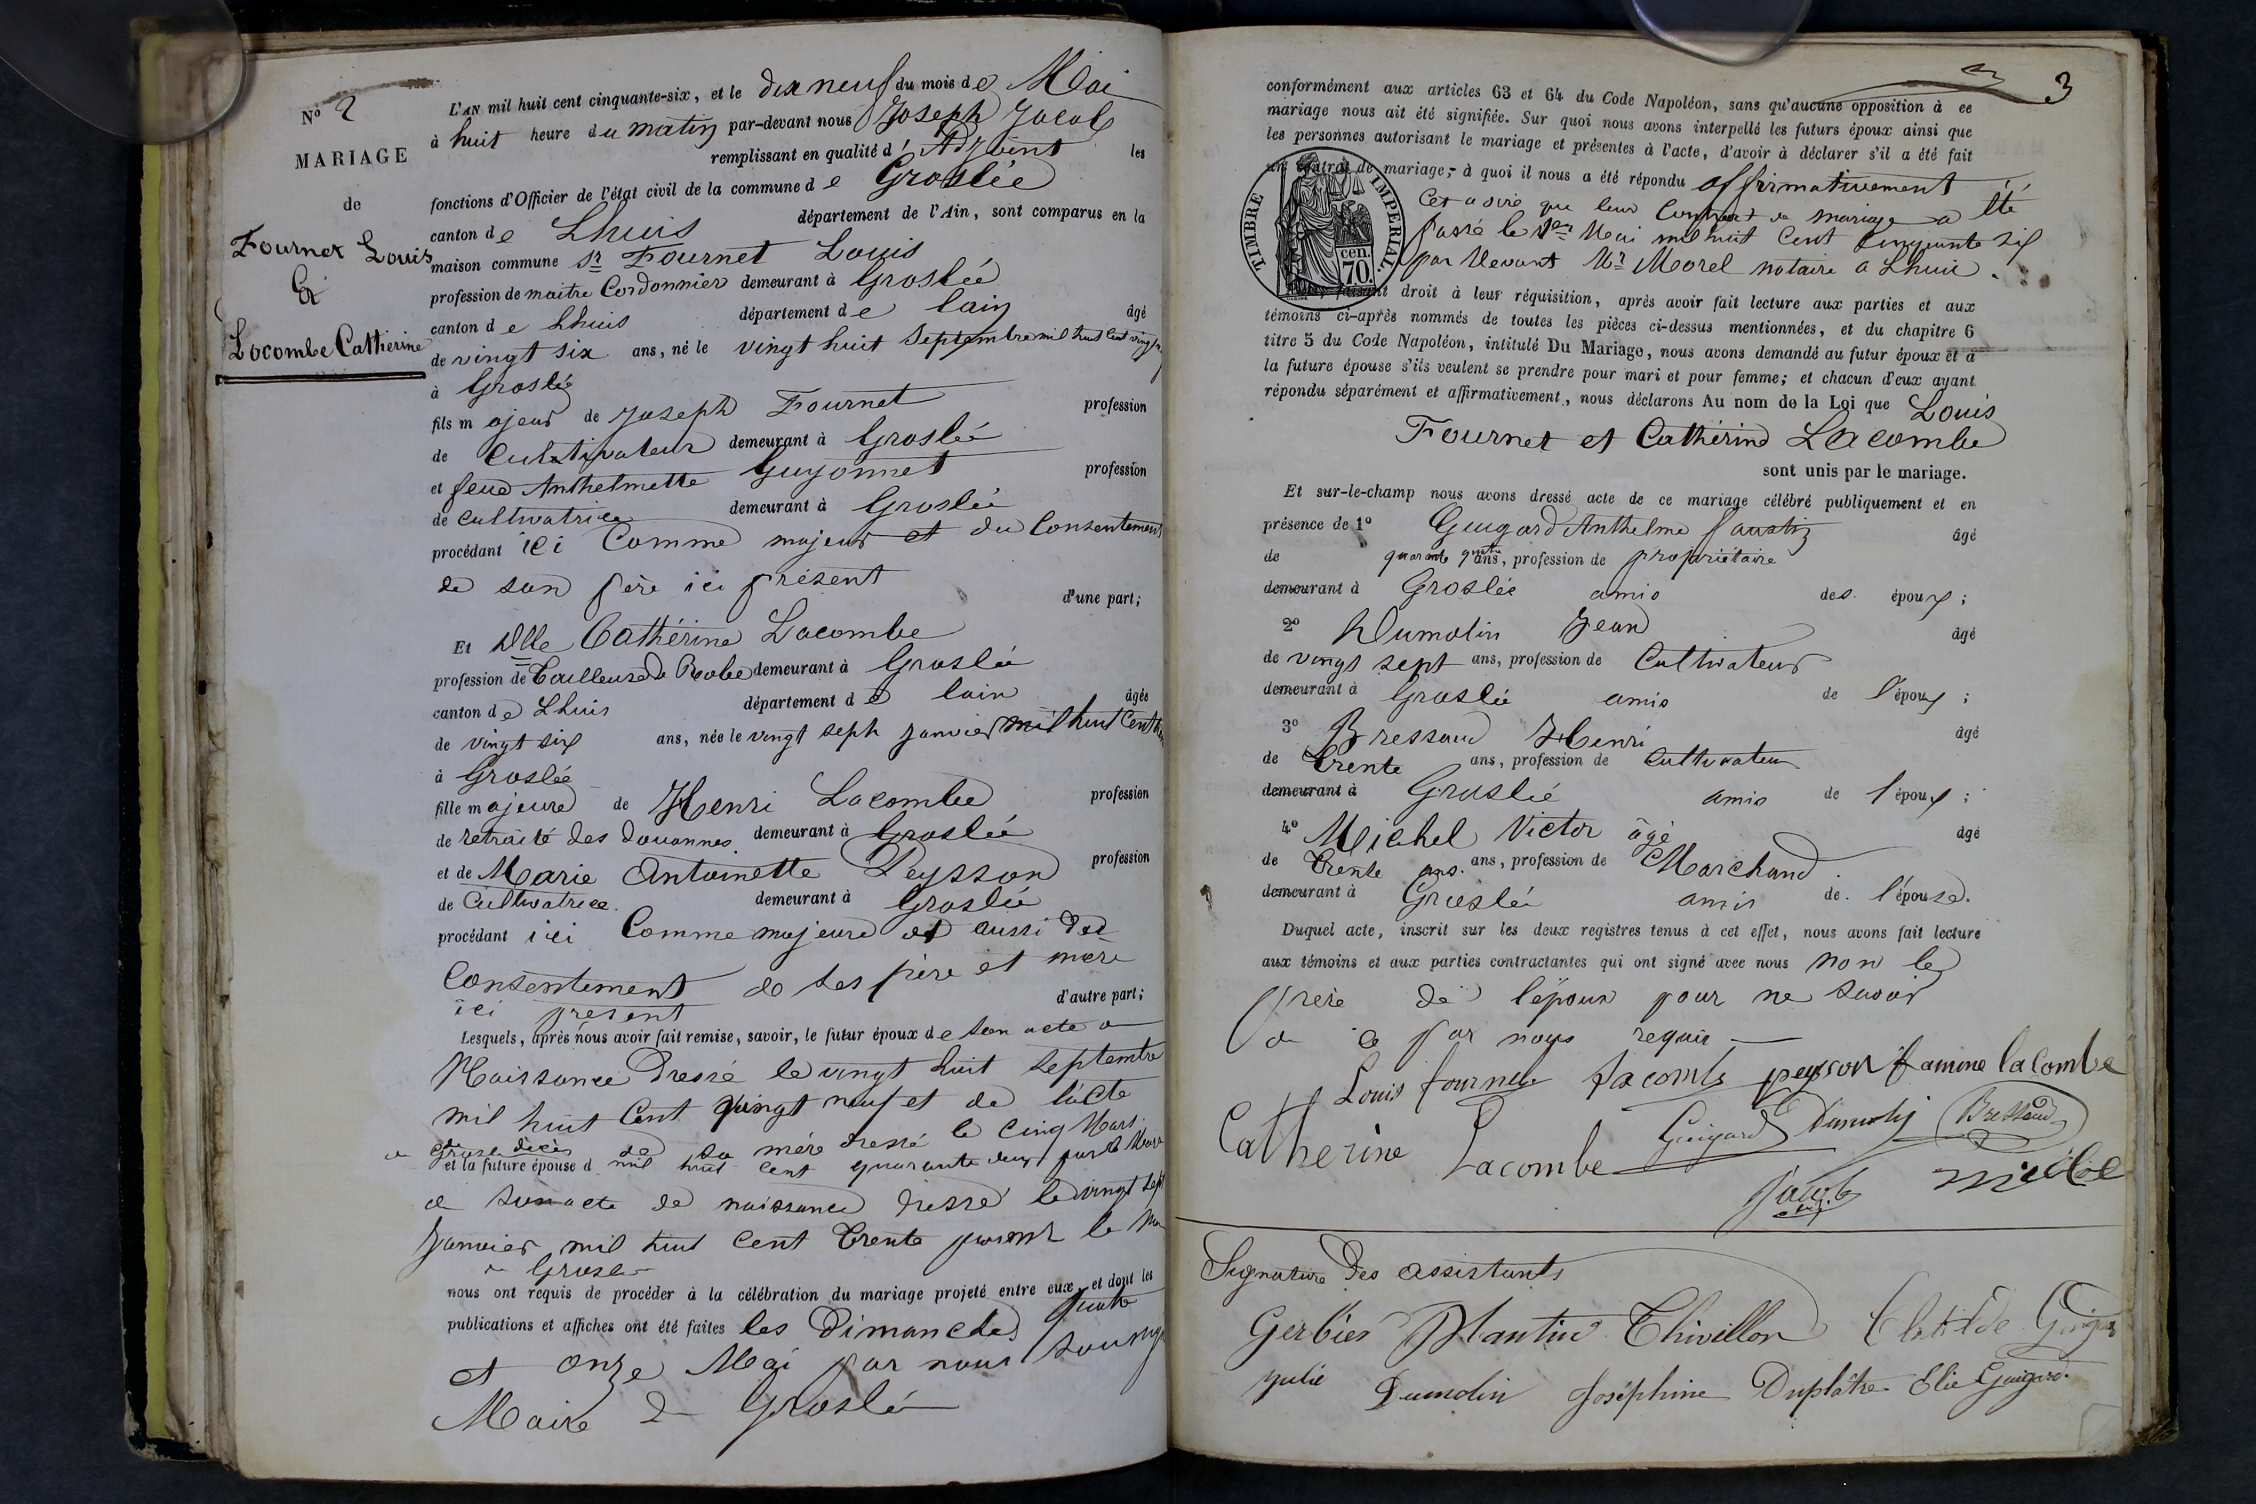 N° 2
MARIAGE
de
Fournet Louis
Et
Lacombe Catherine
L'AN mil huit cent cinquante-six, et le dix neuf du mois de Mai
à huit heure du matin par-devant nous Joseph Jacob
remplissant en qualité d'Adjoint les
fonctions d'Officier de l'état civil de la commune de Groslée
canton de Lhuis département de l'Ain, sont comparus en la
maison commune Sr Fournet Louis
profession de maitre Cordonnier demeurant à Groslée
canton de Lhuis département de lain âgé
de vingt six ans, né le vingt huit Septembre mil huit cent vingt
à Groslée
fils majeur de Joseph Fournet profession
de Cultivateur demeurant à Groslée
et feue Anthelmette Guyonnet profession
de cultivatrice demeurant à Groslée
procédant ici Comme majeur et du Consentement
de son père ici présent
d'une part;
Et Dlle Cathérine Lacombe
profession de Tailleuse de Robe demeurant à Groslée
canton de Lhuis département de lain âgée
de vingt six ans, née le vingt seph janvier mil huit Cent
à Groslée
fille majeure de Henri Lacombe profession
de retraité des douannes demeurant à Groslée
et de Marie Antoinette Peysson profession
de Cultivatrice demeurant à Groslée
procédant ici Comme majeure et aussi du
Consentement de ses père et mère
ici présent d'autre part;
Lesquels, après nous avoir fait remise, savoir, le futur époux de son acte de
Naissance Dressé le vingt huit Septembre
mil huit Cent vingt neuf et de l'acte
de décès de sa mère dressé le cinq Mars
et la future épouse d mil huit cent quarante deux par le Maire
de Groslée
de son acte de naissance dressé le vingt sept
Janvier mil huit Cent Trente par le
de Groslée
nous ont requis de procéder à la célébration du mariage projeté entre eux, et dont les
publications et affiches ont été faites les Dimanches quatre
et onze Mai par nous
Maire de Groslée
3
conformément aux articles 63 et 64 du Code Napoléon, sans qu'aucune opposition à ce
mariage nous ait été signifiée. Sur quoi nous avons interpellé les futurs époux ainsi que
les personnes autorisant le mariage et présentes à l'acte, d'avoir à déclarer s'il a été fait
un contrat de mariage; à quoi il nous a été répondu affirmativement
Cet a dire que leur Contrat de mariage a été
passé le 1er Mai mil huit Cent Cinquante six
par Devant Mr Morel notaire a Lhuis.
TIMBRE IMPERIAL.
70. cen.
faisant droit à leur réquisition, après avoir fait lecture aux parties et aux
témoins ci-après nommés de toutes les pièces ci-dessus mentionnées, et du chapitre 6
titre 5 du Code Napoléon, intitulé Du Mariage, nous avons demandé au futur époux et à
la future épouse s'ils veulent se prendre pour mari et pour femme; et chacun d'eux ayant
répondu séparément et affirmativement, nous déclarons Au nom de la Loi que Louis
Fournet et Cathérine Lacombe
sont unis par le mariage.
Et sur-le-champ nous avons dressé acte de ce mariage célébré publiquement et en
présence de 1° Guigard Anthelme faustin âgé
de quarante quatre ans, profession de propriétaire
demeurant à Groslée amis des époux;
2° Dumolin Jean âgé
de vingt sept ans, profession de Cultivateur
demeurant à Groslée amis de l'époux;
3° Bressaud Henri âgé
de Trente ans, profession de Cultivateur
demeurant à Groslée amis de l'époux;
4° Michel Victor âgé âgé
de Trente ans. ans, profession de Marchand
demeurant à Groslée amis de l'épouse.
Duquel acte, inscrit sur les deux registres tenus à cet effet, nous avons fait lecture
aux témoins et aux parties contractantes qui ont signé avec nous non le
père de l'époux pour ne savoir
de ce par nous requis
Louis fournet Lacombe peysson famme lacombe
Catherine Lacombe Guigard Dumolin Bressaud
Jacob Michel
Signature des assistants
Gerbier Plantin Thivillon Clotilde Guigard
Julie Dumolin Joséphine Duplâtre Elie Guigard.